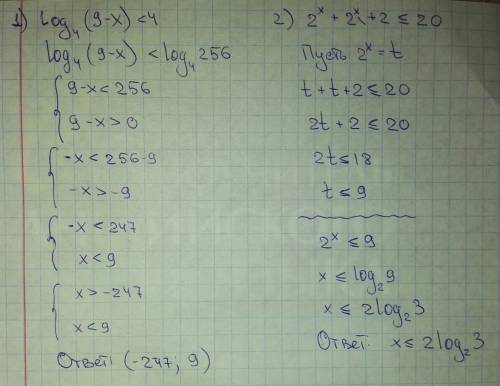 1) log₄(9-x)<4
log₄(9-x) < log₄256
9-x<256
9-x>0
-x<256-9
-x>-9
-x<247
x<9
x>-247
x<9
Ответ: (-247; 9)
2) 2ˣ + 2ˣ + 2 ≤ 20
Пусть 2ˣ = t
t + t + 2 ≤ 20
2t + 2 ≤ 20
2t ≤ 18
t ≤ 9
2ˣ ≤ 9
x ≤ log₂9
x ≤ 2log₂3
Ответ: x ≤ 2log₂3